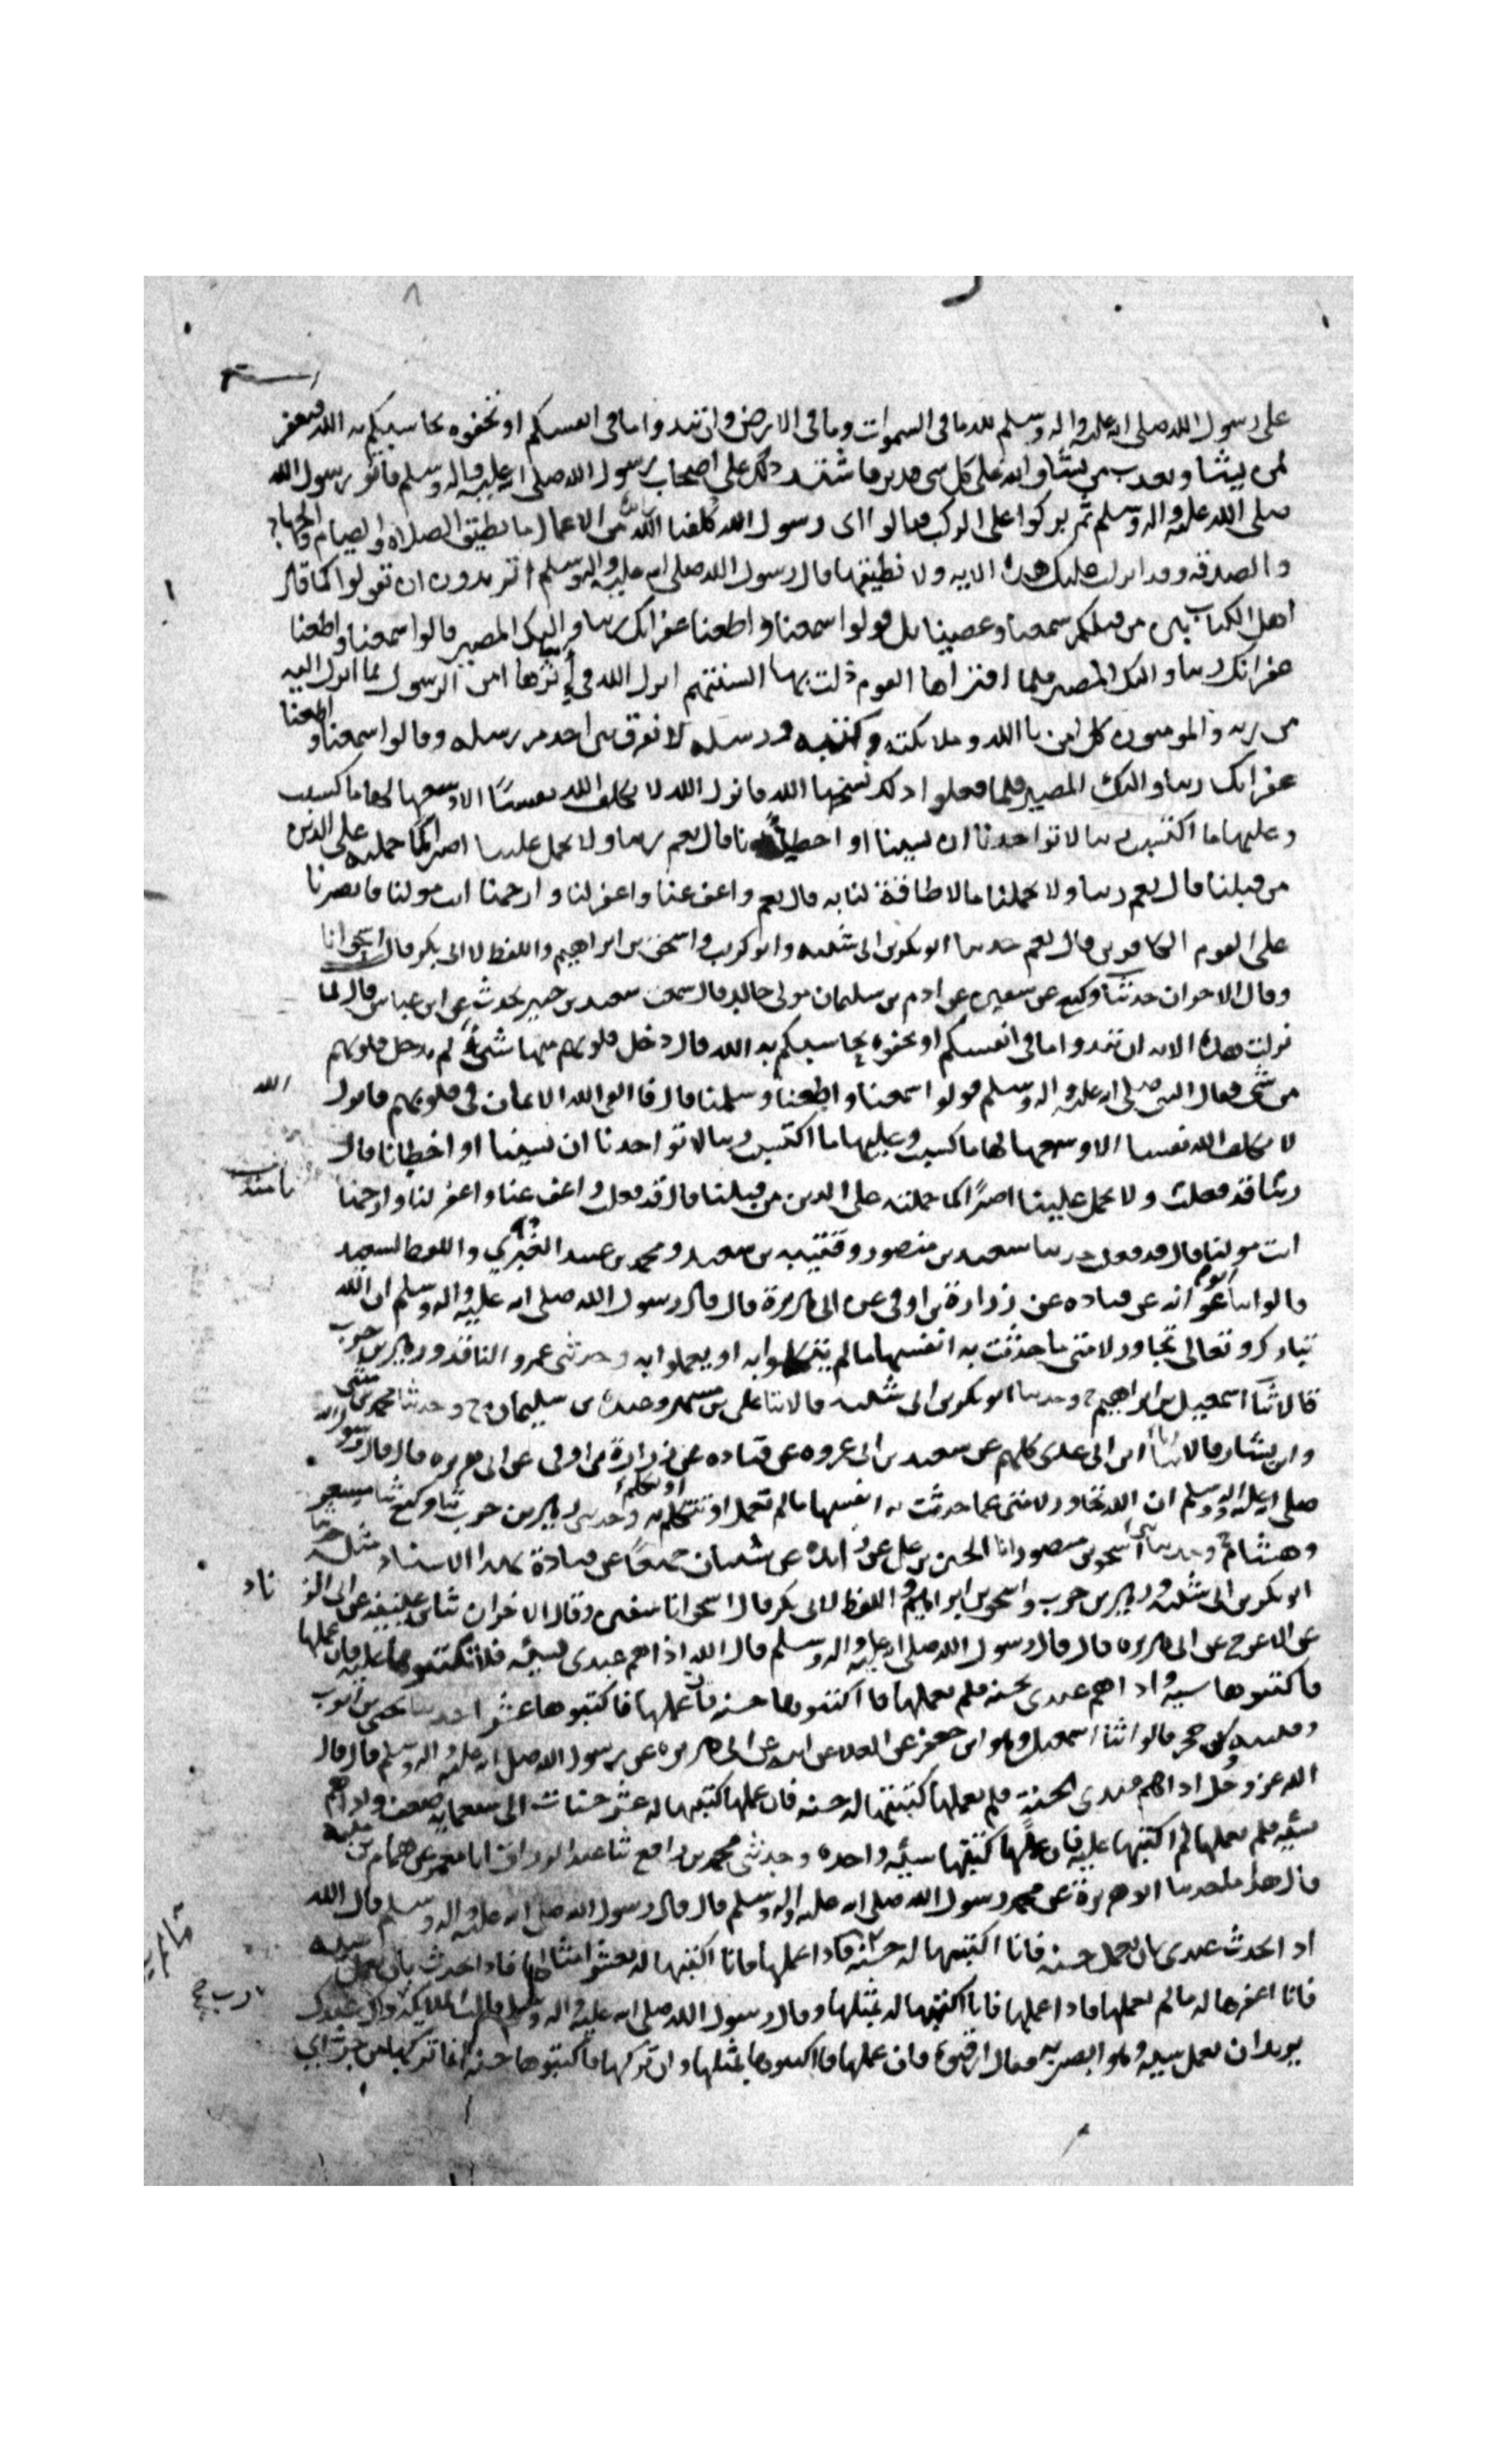 على رسول الله صلى الله عليه واله وسلم لله ما فى السموات وما فى الارض وان تبدوا ما فى انفسكم او تخفوه يحاسبكم به الله فيغفر
لمن يشا ويعذب من يشا والله على كل شى قدير فاشتد ذلك على اصحاب رسول الله صلى الله عليه واله وسلم فاتو رسول الله
صلى الله عليه واله وسلم ثم بركوا على الركب فقالوا اى رسول الله كلفنا من الاعمال ما نطيق الصلاه والصيام والجهاد
والصدقه وقد انزلت عليك هذه الايه ولا نطيقها قال رسول الله صلى الله عليه واله وسلم اتريدون ان تقولوا كما قال
اهل الكتابين من قبلكم سمعنا وعصينا بل قولوا سمعنا واطعنا غفرانك ربنا واليك المصير قالوا سمعنا واطعنا
غفرانك ربنا واليك المصير فلما اقتراها القوم ذلت بها السنتهم انزل الله في إثرها امن الرسول بما انزل اليه
من ربه والمومنون كل امن باالله وملائكته وكتبه ورسله لا نفرق بين احد من رسله وقالوا سمعنا واطعنا
غفرانك ربنا واليك المصير فلما فعلوا ذلك نسخها الله فانزل الله لا يكلف الله نفسًا الا وسعها لها ما كسبت
وعليها ما اكتسبت ربنا لا تواخذنا ان نسينا او اخطأنا قال نعم ربنا ولا تحمل علينا اصراً كما حملته على الذين
من قبلنا قال نعم ربنا ولا تحملنا ما لا طاقة لنا به قال نعم واعف عنا واغفر لنا وارحمنا انت مولنا فانصرنا
على القوم الكافرين قال نعم حدثنا ابو بكر بن ابى شيبه وابو كريب واسحق بن ابراهيم واللفظ لابى بكر قال اسحق انا
وقال الاخران حدثنا وكيع عن سفين عن ادم بن سليمان مولى خالد قال سمعت سعيد بن جبير يحدث عن ابن عباس قال لما
نزلت هذه الايه ان تبدوا ما فى انفسكم او تخفوه يحاسبكم به الله قال دخل قلوبهم منها شىء لم يدخل قلوبهم
من شى فقال النبى صلى الله عليه واله وسلم قولوا سمعنا واطعنا وسلمنا قال فالقى الله الايمان فى قلوبهم فانزل
الله
لا يكلف الله نفسا الا وسعها لها ما كسبت وعليها ما اكتسبت ربنا لا تواخذنا ان نسينا او اخطانا قال
ربنا قد فعلت ولا تحمل علينا اصرًا كما حملته على الذين من قبلنا قال قد فعلت واعف عنا واغفر لنا وارحمنا
انت مولنا قال قد فعلت حدثنا سعيد بن منصور وقتيبه بن سعيد ومحمد بن عبيد الغبري واللفظ لسعيد
قالوا ثنا ابو عوانه عن قتاده عن زرارة بن اوفى عن ابى هريرة قال قال رسول الله صلى الله عليه واله وسلم ان الله
تبارك وتعالى تجاوز لامتى ما حدثت به انفسها ما لم يتكلموا به او يعملوا به وحدثنى عمرو الناقد وزهير بن حرب
قالا ثنا اسمعيل بن ابراهيم ح وحدثنا ابو بكر بن ابى شيبه قال ثنا على بن مسهر وعبده بن سليمان ح وحدثنا محمد بن مثنى
وابن بشار قالا ثنا ابن ابى عدى كلهم عن سعيد بن ابى عروه عن قتاده عن زرارة بن اوفى عن ابى هريره قال قال رسول الله
صلى الله عليه واله وسلم ان الله تجاوز لامتى عما حدثت به انفسها ما لم تعمل او تتكلم به وحدثنى زهير بن حرب ثنا وكيع ثنا مسعر
وهشام ح وحدثنى اسحق بن منصور انا الحسين بن على عن زايده عن شيبان جميعًا عن قتادة بهذا الاسناد مثله حدثنا
ابو بكر بن ابى شيبه وزهير بن حرب واسحق بن ابراهيم واللفظ لابى بكر قال اسحق انا سفين وقال الاخران ثنا بن عيينه عن ابى الز
ناد
عن الاعرج عن ابى هريره قال قال رسول الله صلى الله عليه واله وسلم قال الله اذا هم عبدى بسيئه فلا تكتبوها عليه فان عملها
فاكتبوها سيئه واذا هم عبدى بحسنه فلم يعملها فاكتبوها حسنه فان عملها فاكتبوها عشرا حدثنا يحيى بن ايوب
وقتيبه وبن حجر قالوا ثنا اسمعيل وهو ابن جعفر عن العلا عن ابيه عن ابى هريره عن رسول الله صلى الله عليه واله وسلم قال قال
الله عز وجل اذا هم عبدى بحسنة فلم يعملها كتبتها له حسنه فان عملها كتبتها له عشر حسنات الى سبعمايه ضعف واذا هم
بسئيه فلم يعملها لم اكتبها عليه فان عملها كتبتها سيئه واحده وحدثنى محمد بن رافع ثنا عبد الرزاق انا معمر عن همام بن منبه
قال هذا ما حدثنا ابو هريرة عن محمد رسول الله صلى الله عليه واله وسلم قال قال رسول الله صلى الله عليه واله وسلم قال الله
اذا تحدث عبدى بان يعمل حسنه فانا اكتبها له حسنه فاذا عملها فانا اكتبها له بعشر امثالها فاذا تحدث بان يعمل سيئه
فانا اغفرها له ما لم يعملها فاذا عملها فانا اكتبها له بمثلها وقال رسول الله صلى الله عليه واله وسلم قالت الملايكه رب ذاك عبدك
يريد ان يعمل سيئه وهو ابصر به فقال ارقبوه فان عملها فاكتبوها بمثلها وان تركها فاكتبوها حسنه انما تركها من جراي